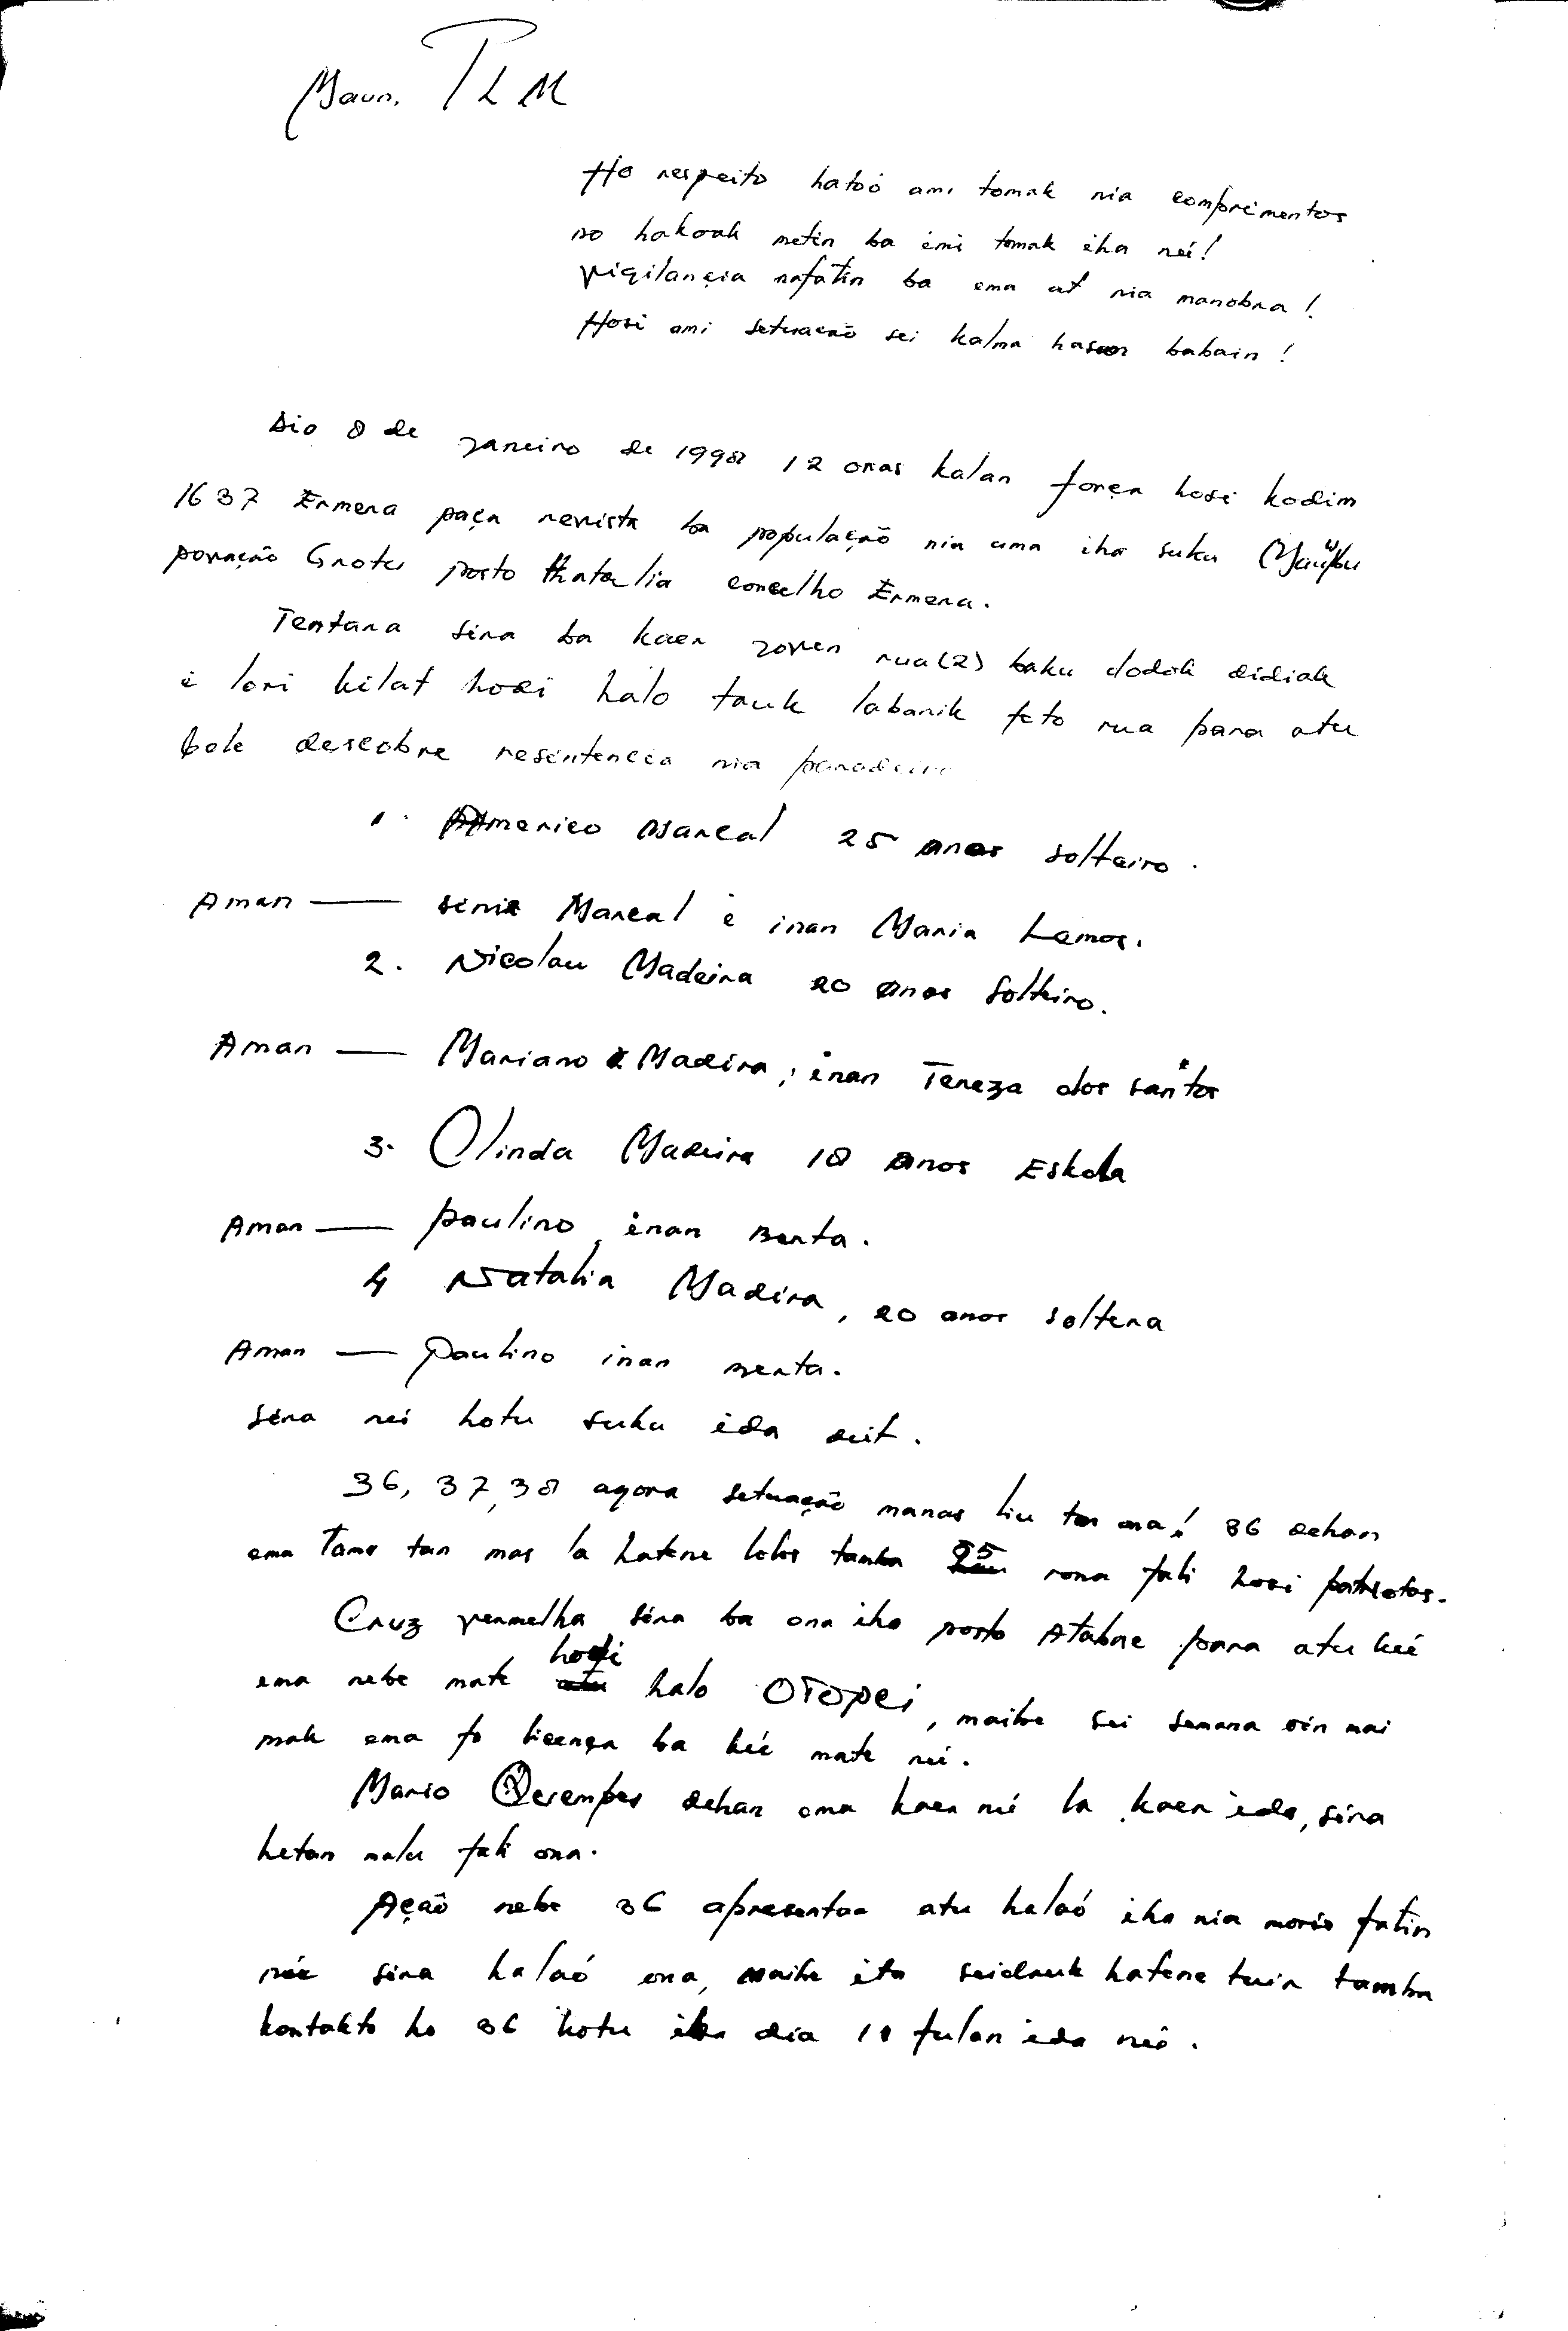 Maun. TLM
Ho respeito hatoó ami tomak nia comprimentos
no hakoak metin ba imi tomak iha neé!
Vigilançia nafatin ba ema at nia manobra!
Hosi ami setuacão sei kalma hasan babain!
Dia 8 de Janeiro de 1998 12 oras kalan força hosi kodim
1637 Ermera paça revista ba população nia uma iha suku
povoação Grotu posto Hatolia concelho Ermera.
Tentara sira ba kaer joven rua (2) baku dodok didiak
i lori kilat hodi halo tauk labarik feto rua para atu
bele descobre resintencia nia paradeiro
1. Americo Marcal 25 anos solteiro.
Aman — Marcal e inan Maria Lemos.
2. Nicolau Madeira 20 anos Solteiro.
Aman — Mariano Madeira; inan Tereza dos santos
3. Olinda Madeira 18 anos Eskola
Aman — paulino, inan Berta.
4 Natalia Madeira, 20 anos soltera
Aman — Paulino inan Berta.
Sira neé hotu suku ida deit.
36, 37, 38 agora setuação manas liu tan ona! 36 dehan
ema Tama tan mas la hatene lolos tamba 25 rona fali hosi patriotas.
Cruz vermelha sira ba ona iha posto Atabae para atu keé
ema nebe mate hodi halo OTOPCi, maibe sei semana oin mai
mak ema fo licença ba keé mate neé.
Mario dehan ema kaer neé la kaer ida, sira
hetan malu fali ona.
Acão nebe 36 apresentan atu halaó iha nia moris fatin
neé sira halaó ona, maibe ita seidauk hatene tuir tamba
kontakto ho 36 hotu iha dia 10 fulan ida neé.